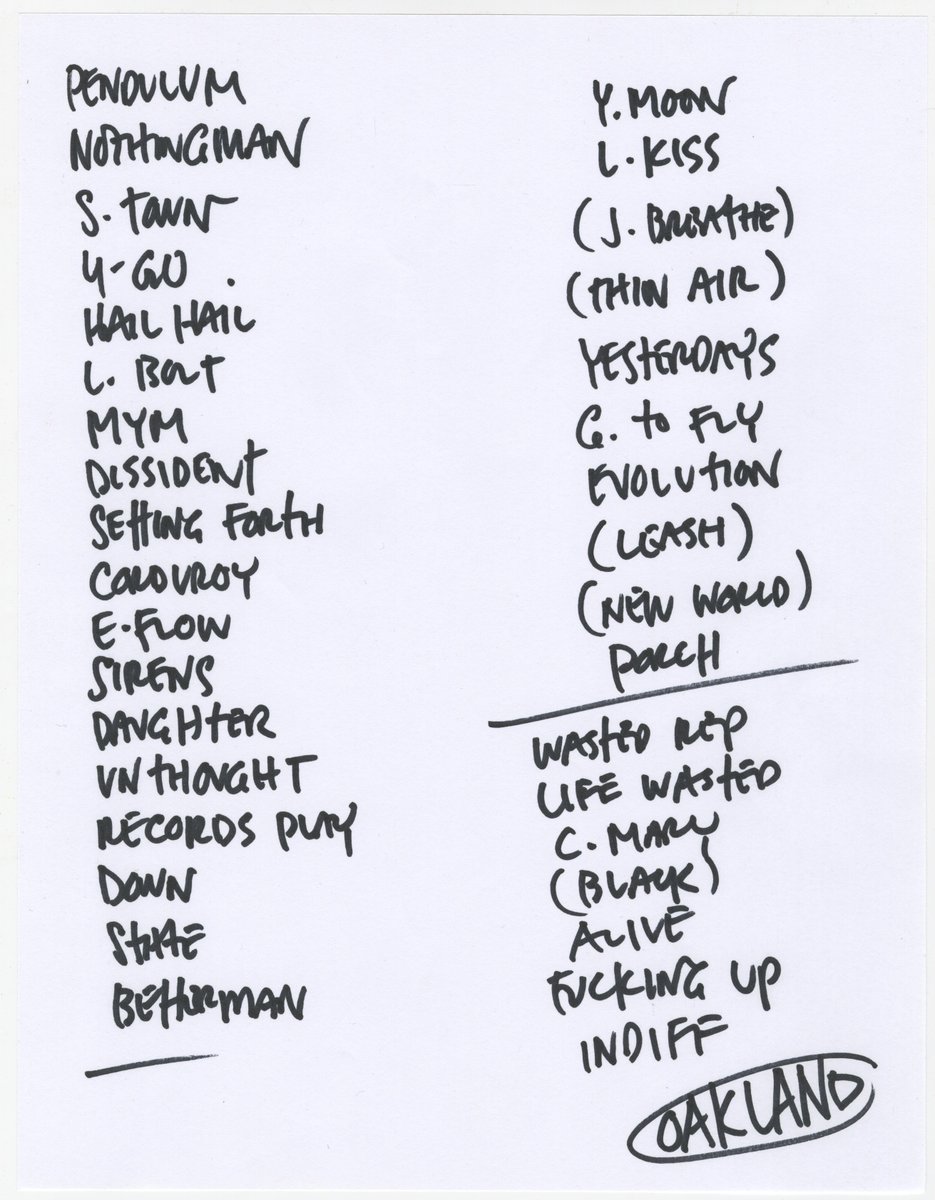 PENDULUM
NOTHINGMAN
S. TOWN
U-GO .
HAIL HAIL
L. BOLT
MYM
DISSIDENT
SETTING FORTH
CORDUROY
E-FLOW
SIRENS
DAUGHTER
UNTHOUGHT
RECORDS PLAY
DOWN
STATE
BETTERMAN
Y. MOON
L. KISS
(J. BREATHE)
(THIN AIR)
YESTERDAYS
G. to FLY
EVOLUTION
(LEASH)
(NEW WORLD)
PORCH
WASTED REP
LIFE WASTED
C. MARY
(BLACK)
ALIVE
FUCKING UP
INDIFF
OAKLAND